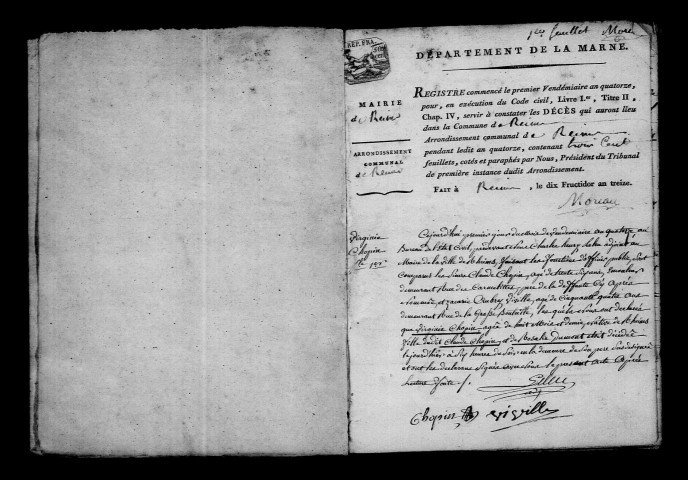 1er feuillet Moreau
RÉP. FRA.
DÉPARTEMENT DE LA MARNE.
MAIRIE
de Reims
ARRONDISSEMENT
COMMUNAL
de Reims
REGISTRE commencé le premier Vendémiaire an quatorze,
pour, en exécution du Code civil, Livre I.er, Titre II,
Chap. IV, servir à constater les DÉCÈS qui auront lieu
dans la Commune de Reims
Arrondissement communal de Reims
pendant ledit an quatorze, contenant trois Cent
feuillets, cotés et paraphés par Nous, Président du Tribunal
de première instance dudit Arrondissement.
FAIT à Reims, le dix Fructidor an treize.
Moreau
Virginie
Chopin
Cejourd'hui premier jour du mois de Vendemiaire an quatorze, au
Bureau de l'état Civil, pardevant Nous Charles henry adjoint au
Maire de la Ville de Rheims, faisant les fonctions d'officier public, sont
Comparus les Sieurs Claude Chopin, agé de trente
demeurant Rue des Carmelittes, pere de la deffunte Cy Après
Nommée, et Viville, agé de Cinquante quatre ans
demeurant Rue de la Grosse Bouteille, lesquels Nous ont declaré
que Virginie Chopin agée de huit Mois et demi, native de Rheims
fille dudit Claude Chopin, et de Rosalie Dumont était décédée
Cejourd'hier à Six heures du Soir, en la demeure de Son pere Susdesignée
et ont les declarans Signés avec Nous le present acte Après
Lecture faite ./.
Chopin Viville